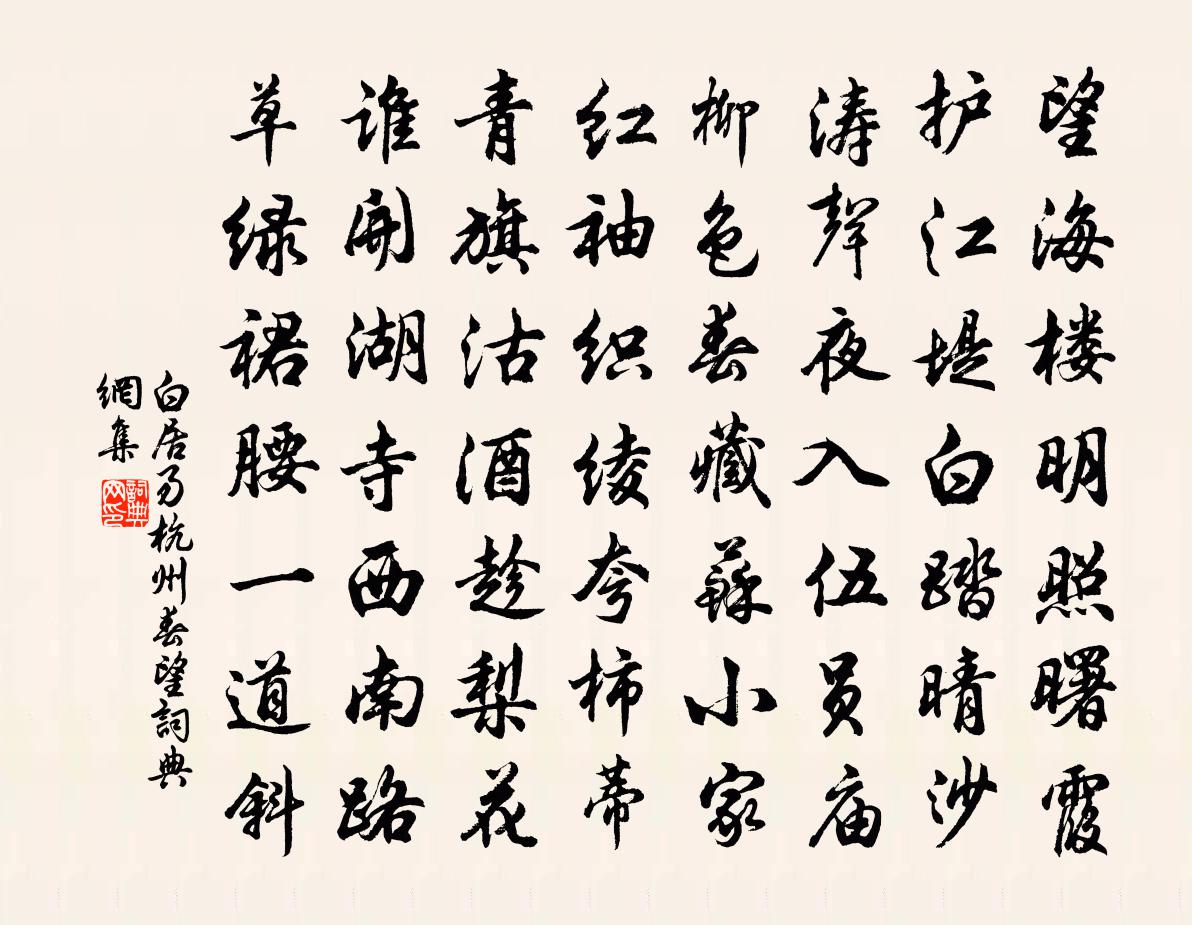 望海楼明照曙霞
护江堤白踏晴沙
涛声夜入伍员庙
柳色春藏蘇小家
红袖织绫夸柿蒂
青旗沽酒趁梨花
谁開湖寺西南路
草绿裙腰一道斜
白居易杭州春望詞典
網集
詞典
网印